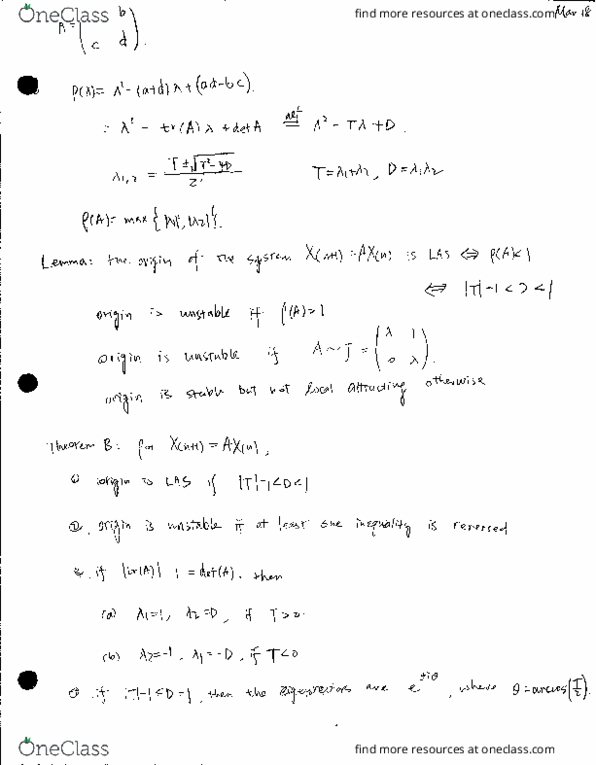 OneClass
find more resources at oneclass.com
Mar 18
A = ( b
c d ).
P(λ) = λ² - (a+d) λ + (ad-bc).
∴ λ² - tr(A) λ + det A def= λ² - Tλ + D.
λ₁,₂ = T ± √T² - 4D / 2 T = λ₁+λ₂, D = λ₁λ₂
ρ(A) = max { |λ₁|, |λ₂| }.
Lemma: the origin of the system X(n+1) = AX(n) is LAS ⇔ ρ(A)<1
⇔ |T|-1 < D < 1
origin is unstable if ρ(A)>1
origin is unstable if A ~ J = ( λ 1
0 λ ).
origin is stable but not local attracting otherwise
Theorem B: for X(n+1) = AX(n),
① origin is LAS if |T|-1<D<1
②. origin is unstable if at least one inequality is reversed
if |tr(A)| - 1 = det(A), then
(a) λ₁=1, λ₂=D, if T>0.
(b) λ₂=-1, λ₁=-D, if T<0
if |T|-1<D=1, then the eigenvectors are e^±iθ, where θ = arccos(T/2).
OneClass
find more resources at oneclass.com